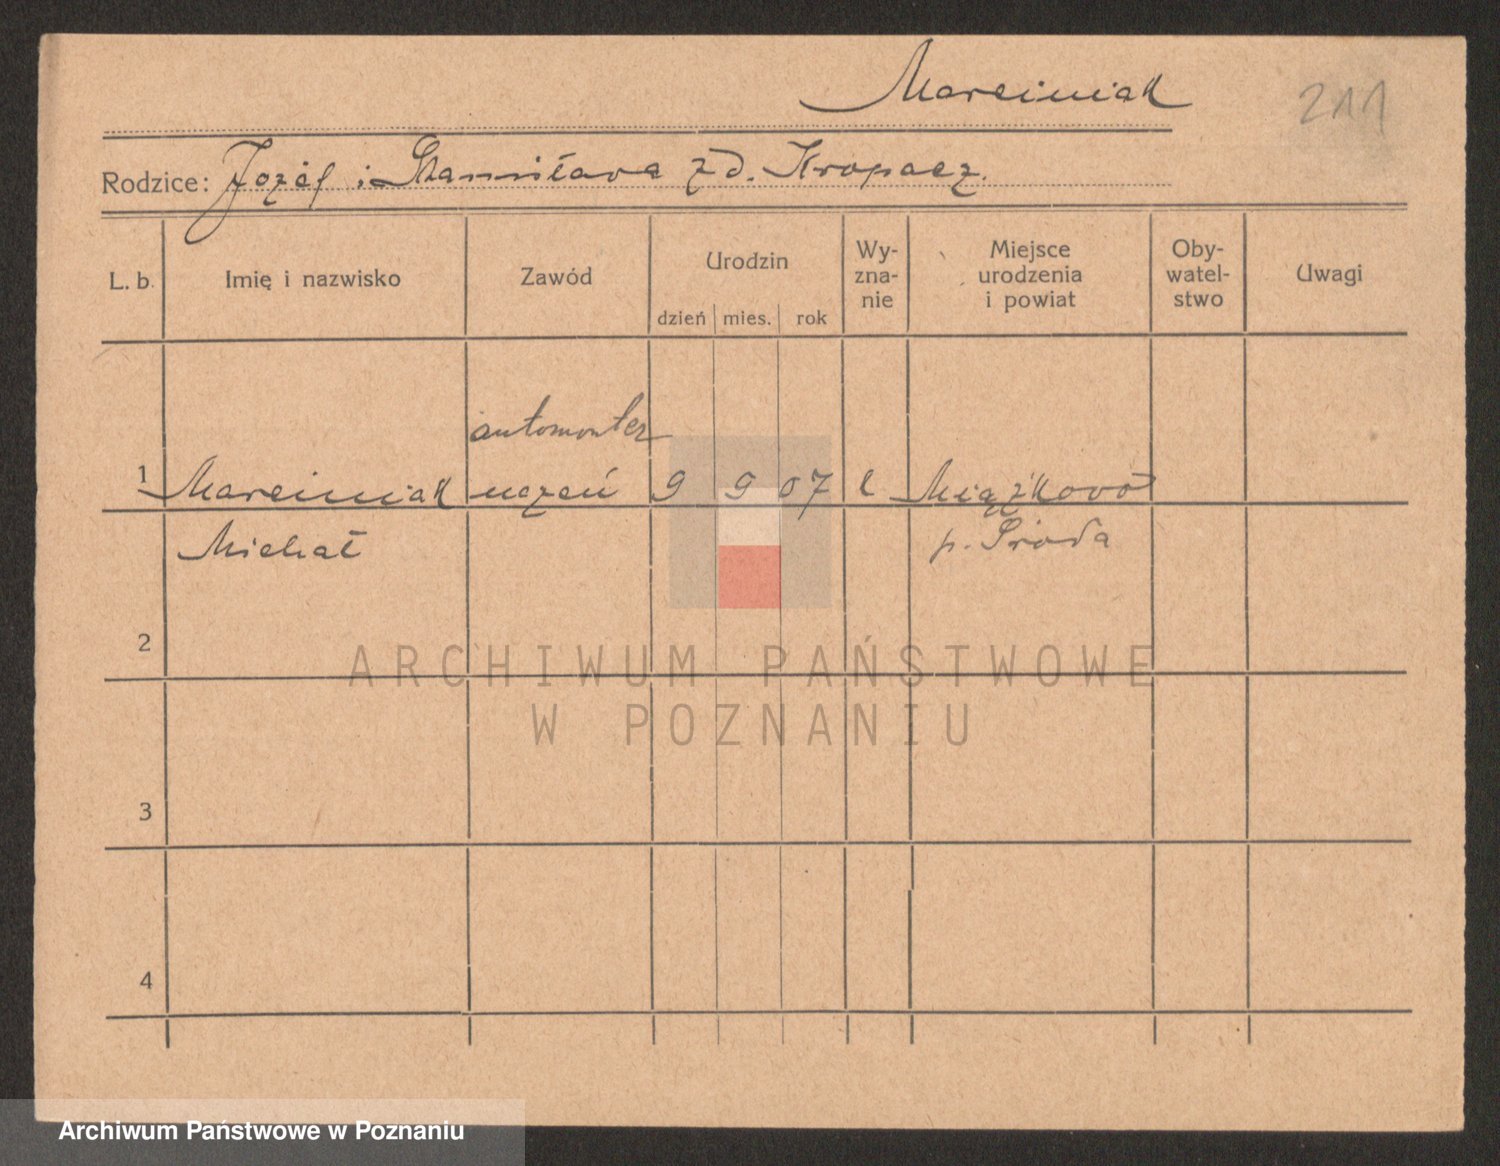 Marciniak
211
Rodzice: Józef i Stanisława z d. Kropacz.
L. b. Imię i nazwisko Zawód Urodzin dzień mies. rok Wy- zna- nie Miejsce urodzenia i powiat Oby- watel- stwo Uwagi
automonter
1 Marciniak uczeń 9 9 07 k Miążkowo
Michał p. Środa
2
ARCHIWUM PAŃSTWOWE
W POZNANIU
3
4
Archiwum Państwowe w Poznaniu